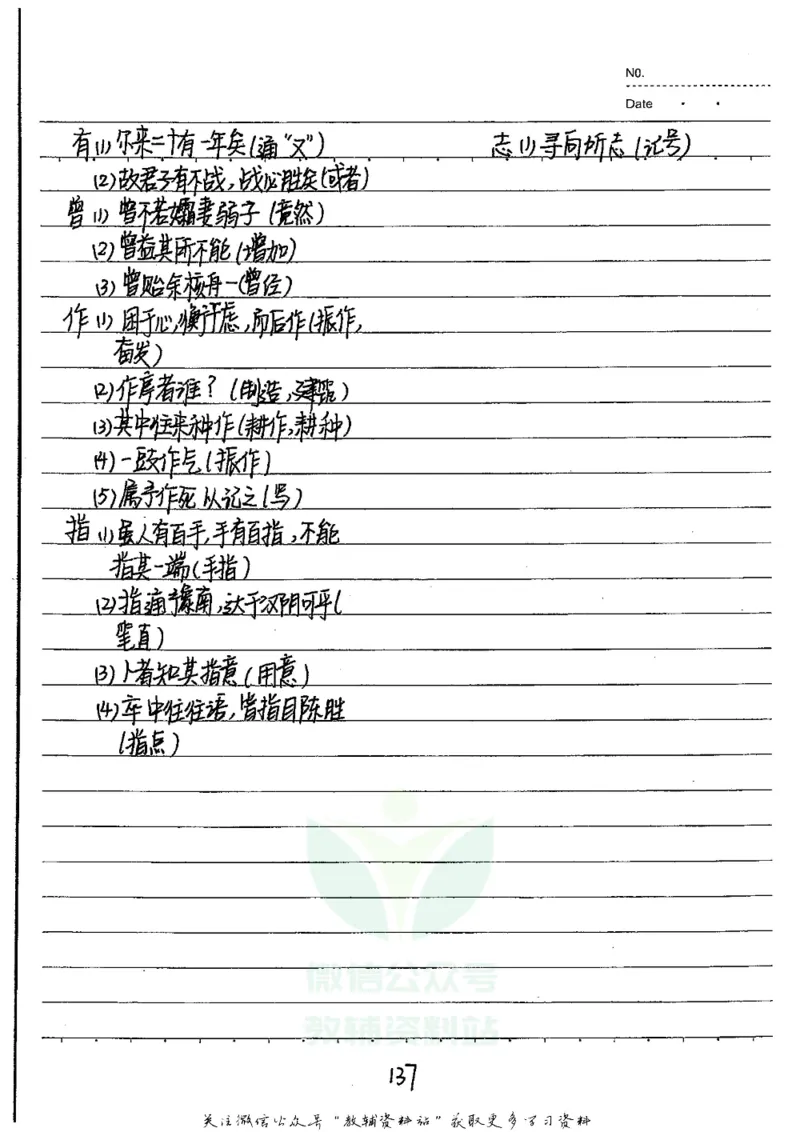 N0.
Date
有(1)尔来二十有一年矣(通"又")
(2)故君子有不战,战必胜矣(或者)
曾(1)曾不若孀妻弱子(竟然)
(2)曾益其所不能(增加)
(3)曾贻余核舟一(曾经)
作(1)困于心,衡于虑,而后作(振作,
奋发)
(2)作亭者谁?(制造,建筑)
(3)其中往来种作(耕作,耕种)
(4)一鼓作气(振作)
(5)属予作死以记之(写)
指(1)虽人有百手,手有百指,不能
指其一端(手指)
(2)指通豫南,达于汉阴可乎(
笔直)
(3)卜者知其指意(用意)
(4)卒中往往语,皆指目陈胜
(指点)
志(1)寻向所志(记号)
微信公众号
教辅资料站
137
关注微信公众号"教辅资料站"获取更多学习资料